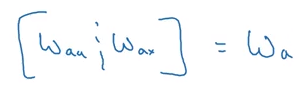 [Waa ; Wax] = Wa